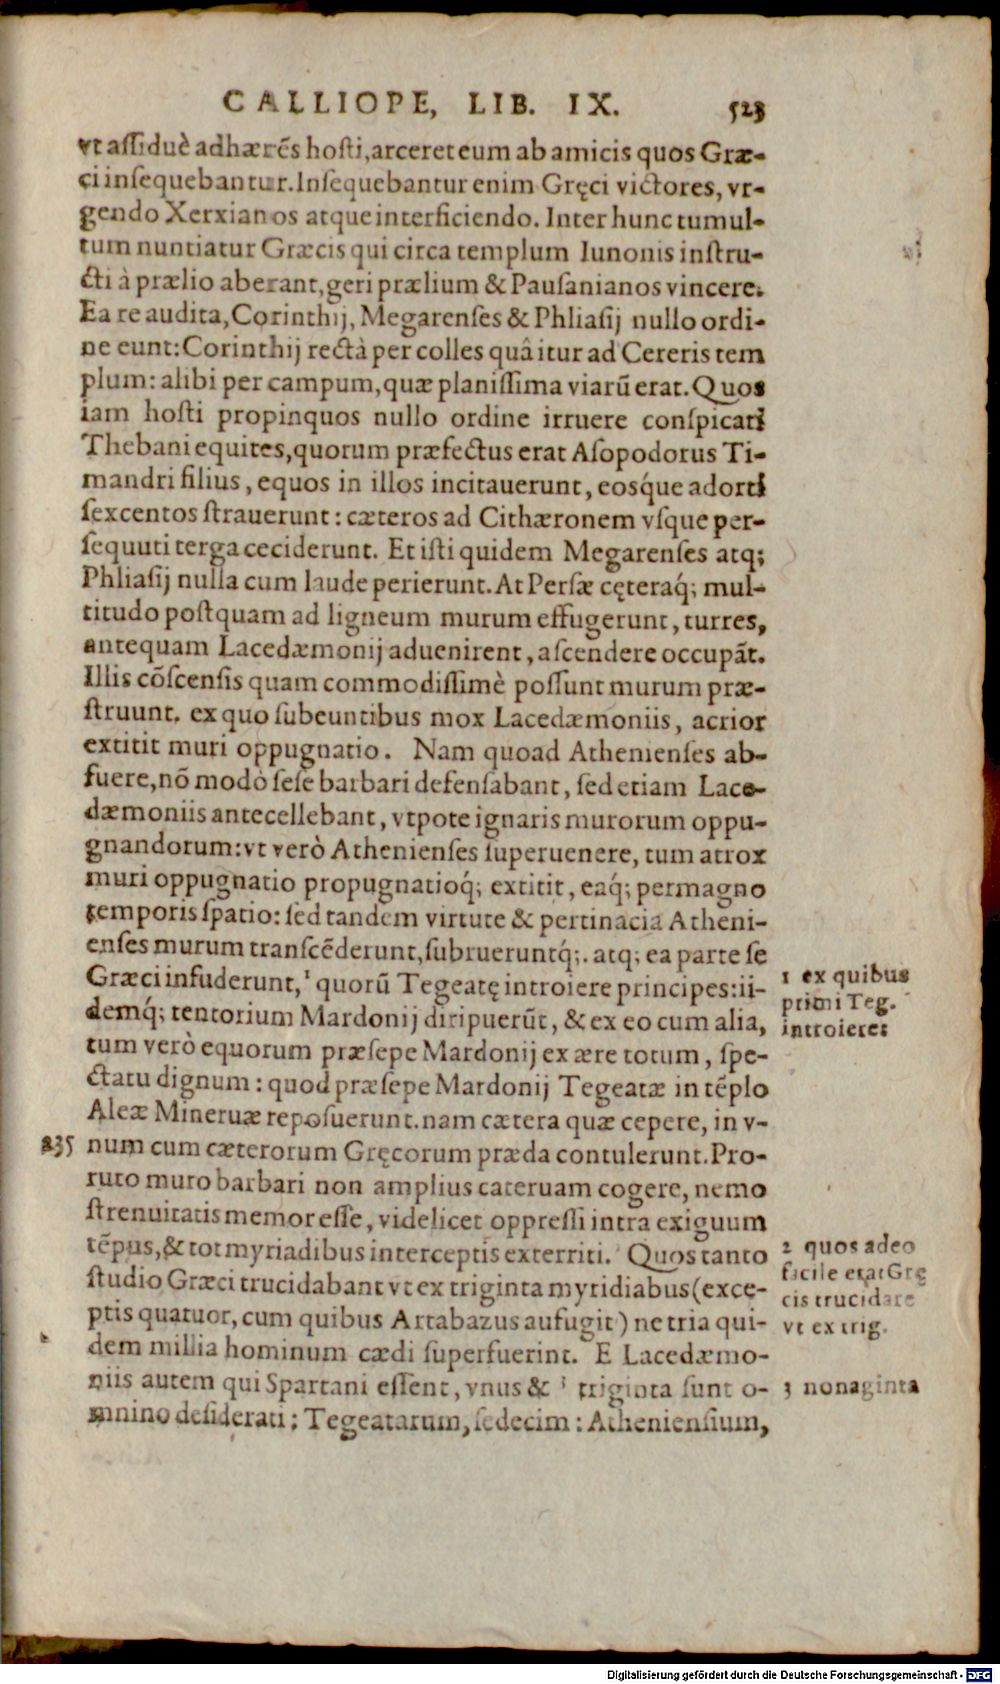 CALLIOPE, LIB. IX. 523
vt aſſiduè adhærēs hoſti, arceret eum ab amicis quos Græ-
ci inſequebantur. Inſequebantur enim Gręci victores, vr-
gendo Xerxianos atque interficiendo. Inter hunc tumul-
tum nuntiatur Græcis qui circa templum Iunonis inſtru-
cti à prælio aberant, geri prælium & Pauſanianos vincere.
Ea re audita, Corinthij, Megarenſes & Phliaſij nullo ordi-
ne eunt: Corinthij rectà per colles quâ itur ad Cereris tem
plum: alibi per campum, quæ planiſſima viarū erat. Quos
iam hoſti propinquos nullo ordine irruere conſpicati
Thebani equites, quorum præfectus erat Aſopodorus Ti-
mandri filius, equos in illos incitauerunt, eosq́ue adorti
ſexcentos ſtrauerunt: cæteros ad Cithæronem vſque per-
ſequuti terga ceciderunt. Et iſti quidem Megarenſes atq;
Phliaſij nulla cum laude perierunt. At Perſæ cęteraq́; mul-
titudo poſtquam ad ligneum murum effugerunt, turres,
antequam Lacedæmonij aduenirent, aſcendere occupāt.
Illis cōſcenſis quam commodiſſimè poſſunt murum præ-
ſtruunt. ex quo ſubeuntibus mox Lacedæmoniis, acrior
extitit muri oppugnatio. Nam quoad Athenienſes ab-
fuere, nō modò ſeſe barbari defenſabant, ſed etiam Lace-
dæmoniis antecellebant, vtpote ignaris murorum oppu-
gnandorum: vt verò Athenienſes ſuperuenere, tum atrox
muri oppugnatio propugnatioq́; extitit, eaq́; permagno
temporis ſpatio: ſed tandem virtute & pertinacia Atheni-
enſes murum tranſcēderunt, ſubrueruntq́;. atq; ea parte ſe
Græci infuderunt, ¹ quorū Tegeatę introiere principes: ii-
demq́; tentorium Mardonij diripuerūt, & ex eo cum alia,
tum verò equorum præſepe Mardonij ex ære totum, ſpe-
ctatu dignum: quod præſepe Mardonij Tegeatæ in tēplo
Aleæ Mineruæ repoſuerunt. nam cætera quæ cepere, in v-
num cum cæterorum Gręcorum præda contulerunt. Pro-
ruto muro barbari non amplius cateruam cogere, nemo
ſtrenuitatis memor eſſe, videlicet oppreſſi intra exiguum
tēpus, & tot myriadibus interceptis exterriti. ² Quos tanto
ſtudio Græci trucidabant vt ex triginta myridiabus (exce-
ptis quatuor, cum quibus Artabazus aufugit) ne tria qui-
dem millia hominum cædi ſuperfuerint. E Lacedæmo-
niis autem qui Spartani eſſent, vnus & ³ triginta ſunt o-
mnino deſiderati: Tegeatarum, ſedecim: Athenienſium,
1 ex quibus
primi Teg.
introiere:
235
2 quos adeo
facile erat Grę
cis trucidare
vt ex trig.
3 nonaginta
Digitalisierung gefördert durch die Deutsche Forschungsgemeinschaft - DFG